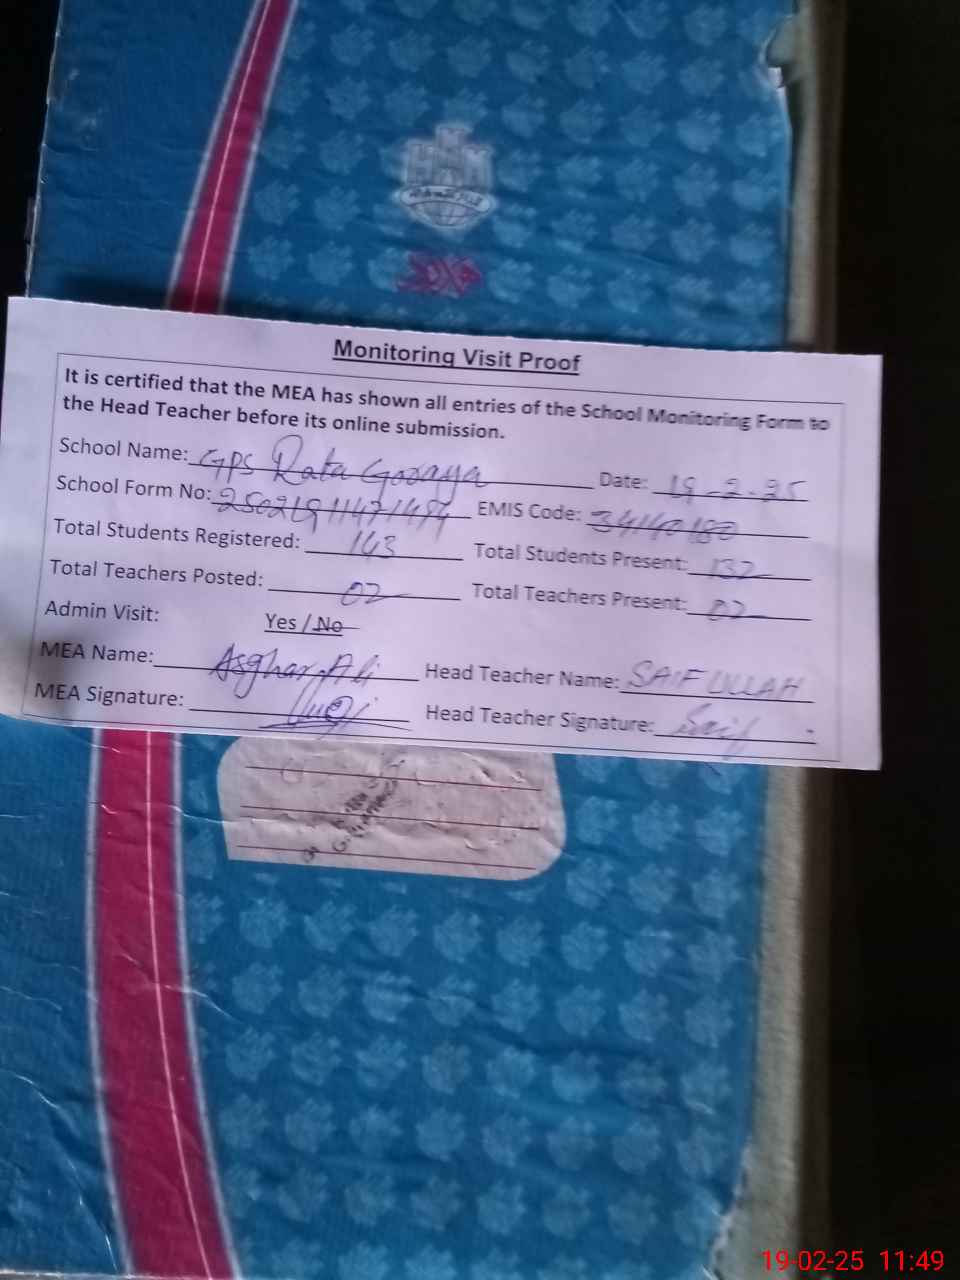 Monitoring Visit Proof
It is certified that the MEA has shown all entries of the School Monitoring Form to
the Head Teacher before its online submission.
School Name: GPS Rata Goraya Date: 19-2-25
School Form No: EMIS Code: 34140180
Total Students Registered: 143 Total Students Present: 132
Total Teachers Posted: 02 Total Teachers Present: 02
Admin Visit: Yes / No
MEA Name: Asghar Ali Head Teacher Name: SAIF ULLAH
MEA Signature: Head Teacher Signature: Saif
19-02-25 11:49